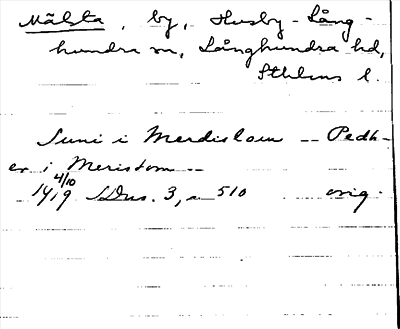 Mälsta, by, Husby-Lång-
hundra sn, Långhundra hd,
Sthlms l.
Suni i Merdistom -- Pedh-
er i Meristom --
1419 4/10 SDns. 3, n 510 orig.